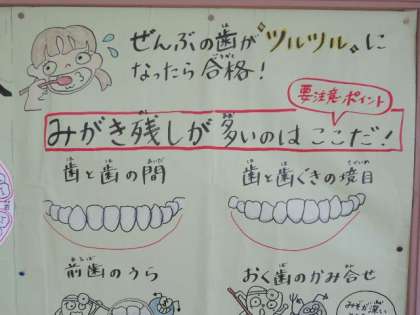 ぜんぶの歯が"ツルツル"に
なったら合格!
要注意ポイント
みがき残しが多いのはここだ!
歯と歯の間
歯と歯ぐきの境目
前歯のうら
おく歯のかみ合せ
みぞが深い